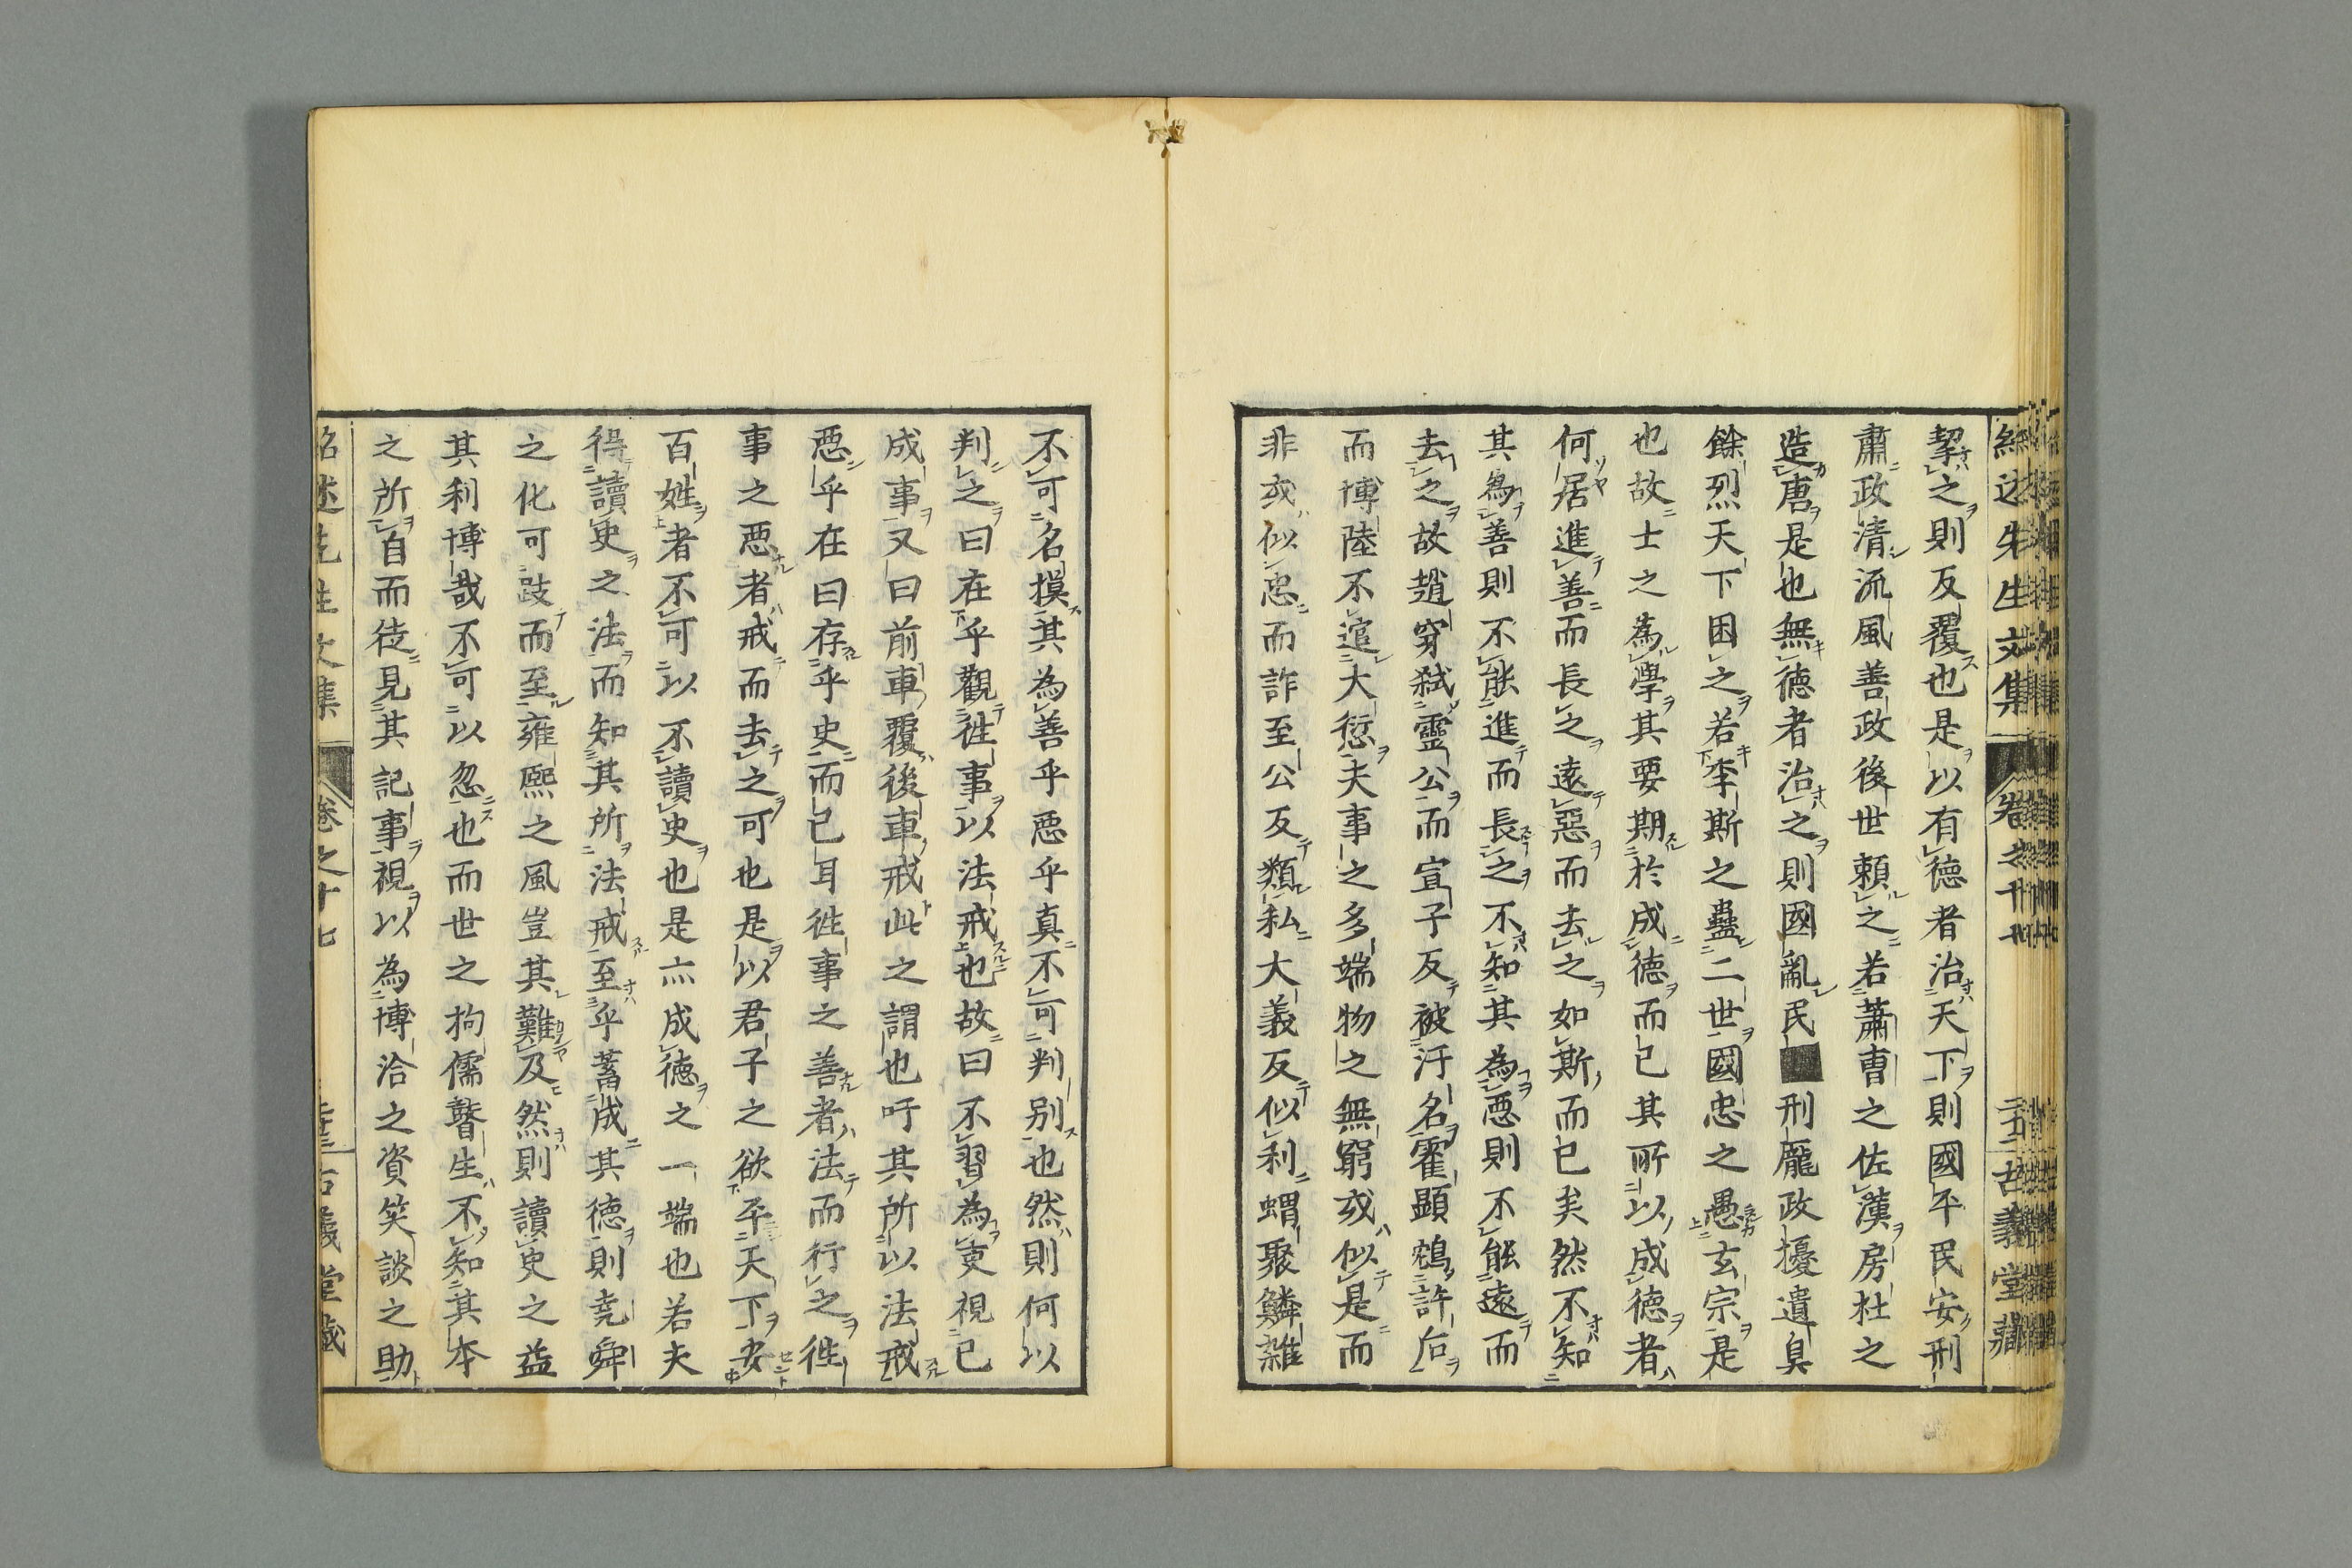 紹述先生文集 卷之十七 古義堂藏
挈之則反覆也是以有德者治天下則國平民安刑
肅政清流風善政後世頼之若蕭曹之佐漢房杜之
造唐是也無德者治之則國亂民■刑厖政擾遺臭
餘烈天下困之若李斯之蠱二世國忠之愚玄宗是
也故士之為學其要期於成德而已其所以成德者
何居進善而長之遠惡而去之如斯而已矣然不知
其為善則不能進而長之不知其為惡則不能遠而
去之故趙穿弑靈公而宣子反被汙名霍顯鴆許后
而博陸不逭大愆夫事之多端物之無窮或似是而
非或似忠而詐至公反類私大義反似利蝟聚鱗雜
不可名摸其為善乎惡乎真不可判別也然則何以
判之曰在乎觀徃事以法戒也故曰不習為吏視已
成事又曰前車覆後車戒此之謂也吁其所以法戒
惡乎在曰存乎史而已耳徃事之善者法而行之徃
事之惡者戒而去之可也是以君子之欲平天下安
百姓者不可以不讀史也是亦成德之一端也若夫
得讀史之法而知其所法戒至乎蓄成其德則堯舜
之化可跂而至雍熙之風豈其難及然則讀史之益
其利博哉不可以忽也而世之拘儒瞽生不知其本
之所自而徒見其記事視以為博洽之資笑談之助
紹述先生文集 卷之十七 古義堂藏